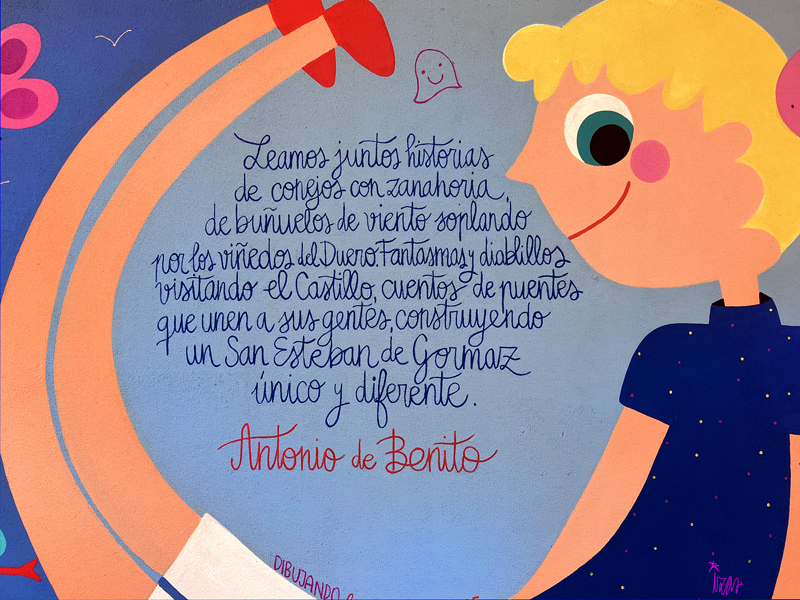 Leamos juntos historias
de conejos con zanahoria,
de buñuelos de viento soplando
por los viñedos del Duero. Fantasmas y diablillos
visitando el Castillo, cuentos de puentes
que unen a sus gentes, construyendo
un San Esteban de Gormaz
único y diferente.
Antonio de Benito
DIBUJANDO